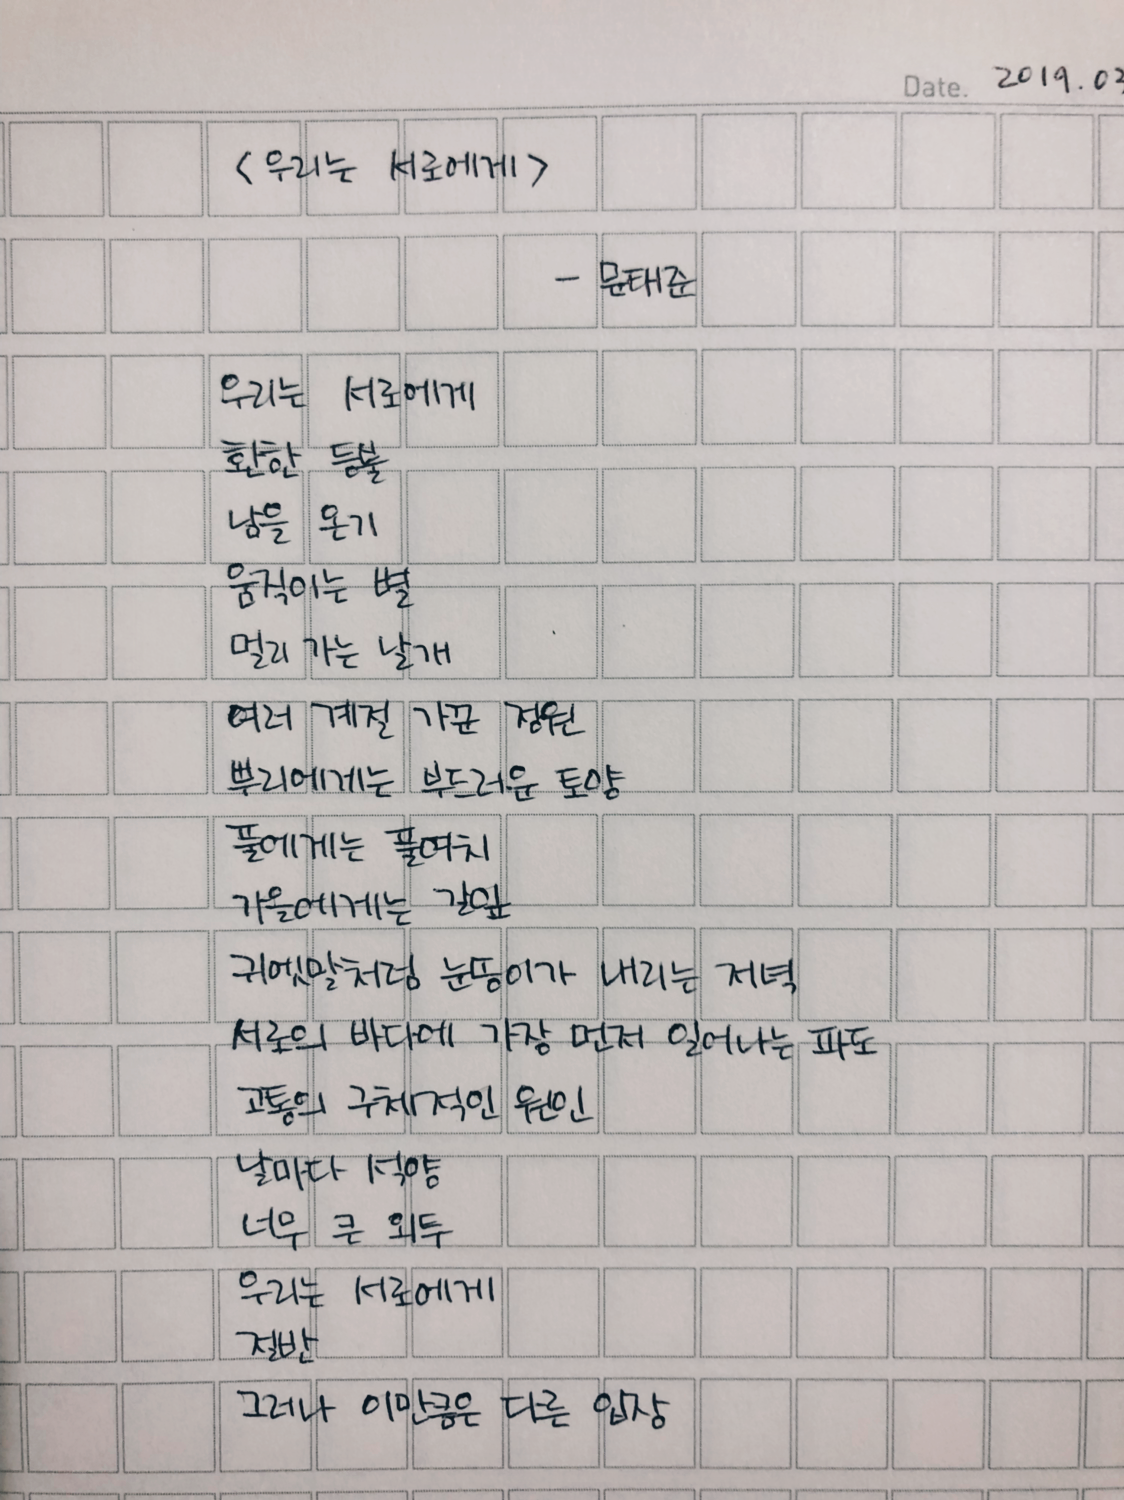 Date. 2019.03
<우리는 서로에게>
- 문태준
우리는 서로에게
환한 등불
남을 온기
움직이는 별
멀리 가는 날개
여러 계절 가꾼 정원
뿌리에게는 부드러운 토양
풀에게는 풀여치
가을에게는 갈잎
귀엣말처럼 눈뜽이가 내리는 저녁
서로의 바다에 가장 먼저 일어나는 파도
고통의 구체적인 원인
날마다 석양
너무 큰 외투
우리는 서로에게
절반
그러나 이만큼은 다른 입장